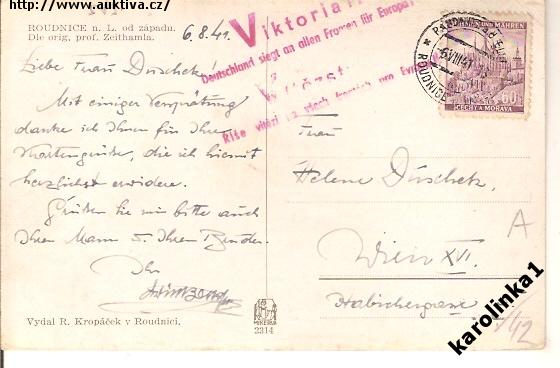 http://www.auktiva.cz/
ROUDNICE n. L. od západu.
Die orig. prof. Zeithamla.
6.8.41.
Liebe Frau Duschek!
Mit einiger Verspätung
danke ich Ihnen für Ihre
Kartengrüße, die ich hiermit
herzlichst erwidere.
Grüßen Sie mir bitte auch
Ihren Mann u. Ihren Bruder.
Ihr
Vydal R. Kropáček v Roudnici.
MINERVA
2314
Viktoria
Deutschland siegt an allen Fronten für Europa!
Vítězství
Říše vítězí na všech frontách pro Evropu
UND MÄHREN
60
ČECHY A MORAVA
ROUDNICE
6.VIII.41
Frau
Helene Duschek,
Wien XVI.
Habichergasse
A
42
karolinka1